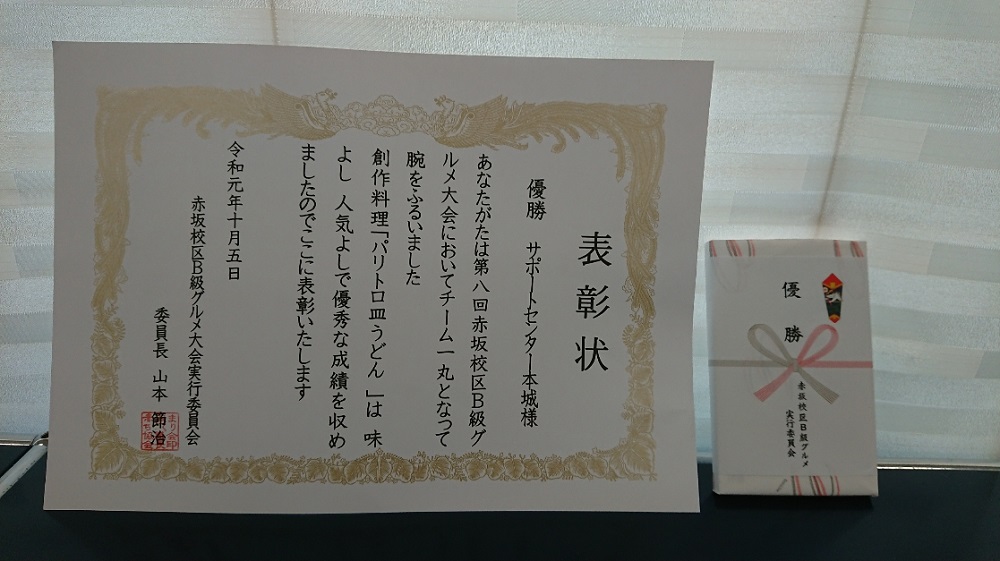 表彰状
優勝 サポートセンター本城様
あなたがたは第八回赤坂校区B級グ
ルメ大会においてチーム一丸となって
腕をふるいました
創作料理「パリトロ皿うどん」は 味
よし 人気よしで優秀な成績を収め
ましたのでここに表彰いたします
令和元年十月五日
赤坂校区B級グルメ大会実行委員会
委員長 山本 節治
優勝
赤坂校区B級グルメ
実行委員会